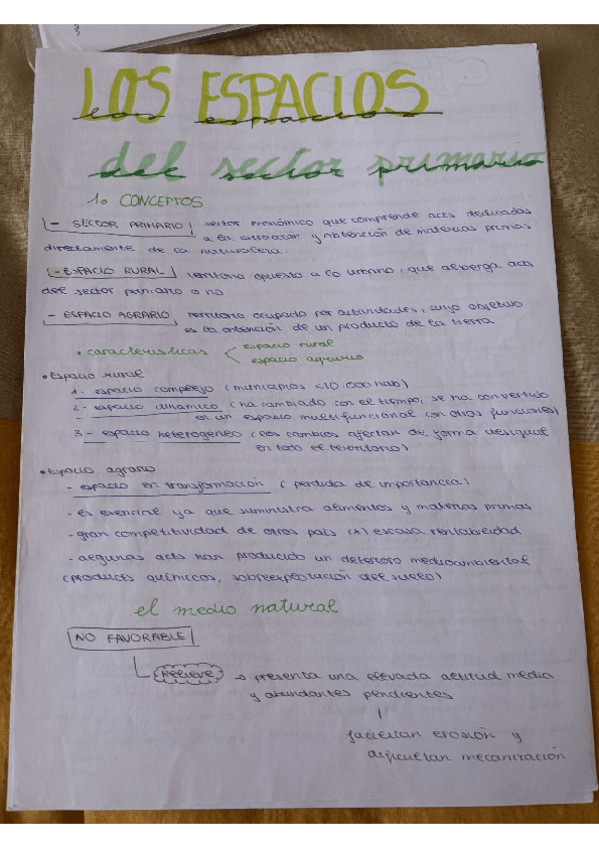 LOS ESPACIOS
los espacios
del sector primario
1. CONCEPTOS
- SECTOR PRIMARIO | sector económico que comprende acts dedicadas
a la extracción y obtención de materias primas
directamente de la naturaleza.
- ESPACIO RURAL | territorio opuesto a lo urbano, que alberga acts
del sector primario o no
- ESPACIO AGRARIO | territorio ocupado por actividades, cuyo objetivo
es la obtención de un producto de la tierra
• características < espacio rural
espacio agrario
• Espacio rural
1- espacio complejo (municipios <10.000 hab)
2- espacio dinámico (ha cambiado con el tiempo, se ha convertido
en un espacio multifuncional con otras funciones)
3- espacio heterogéneo (los cambios afectan de forma desigual
en todo el territorio)
• Espacio agrario
- espacio en transformación (pérdida de importancia)
- es esencial ya que suministra alimentos y materias primas
- gran competitividad de otros país (+) escasa rentabilidad
- algunas acts han producido un deterioro medioambiental
(products químicos, sobreexplotación del suelo)
el medio natural
NO FAVORABLE
Relieve → presenta una elevada altitud media
y abundantes pendientes
facilitan erosión y
dificultan mecanización